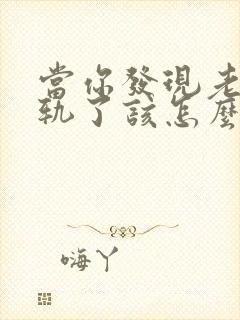 當你發現老
軌了該怎麼
嗨丫